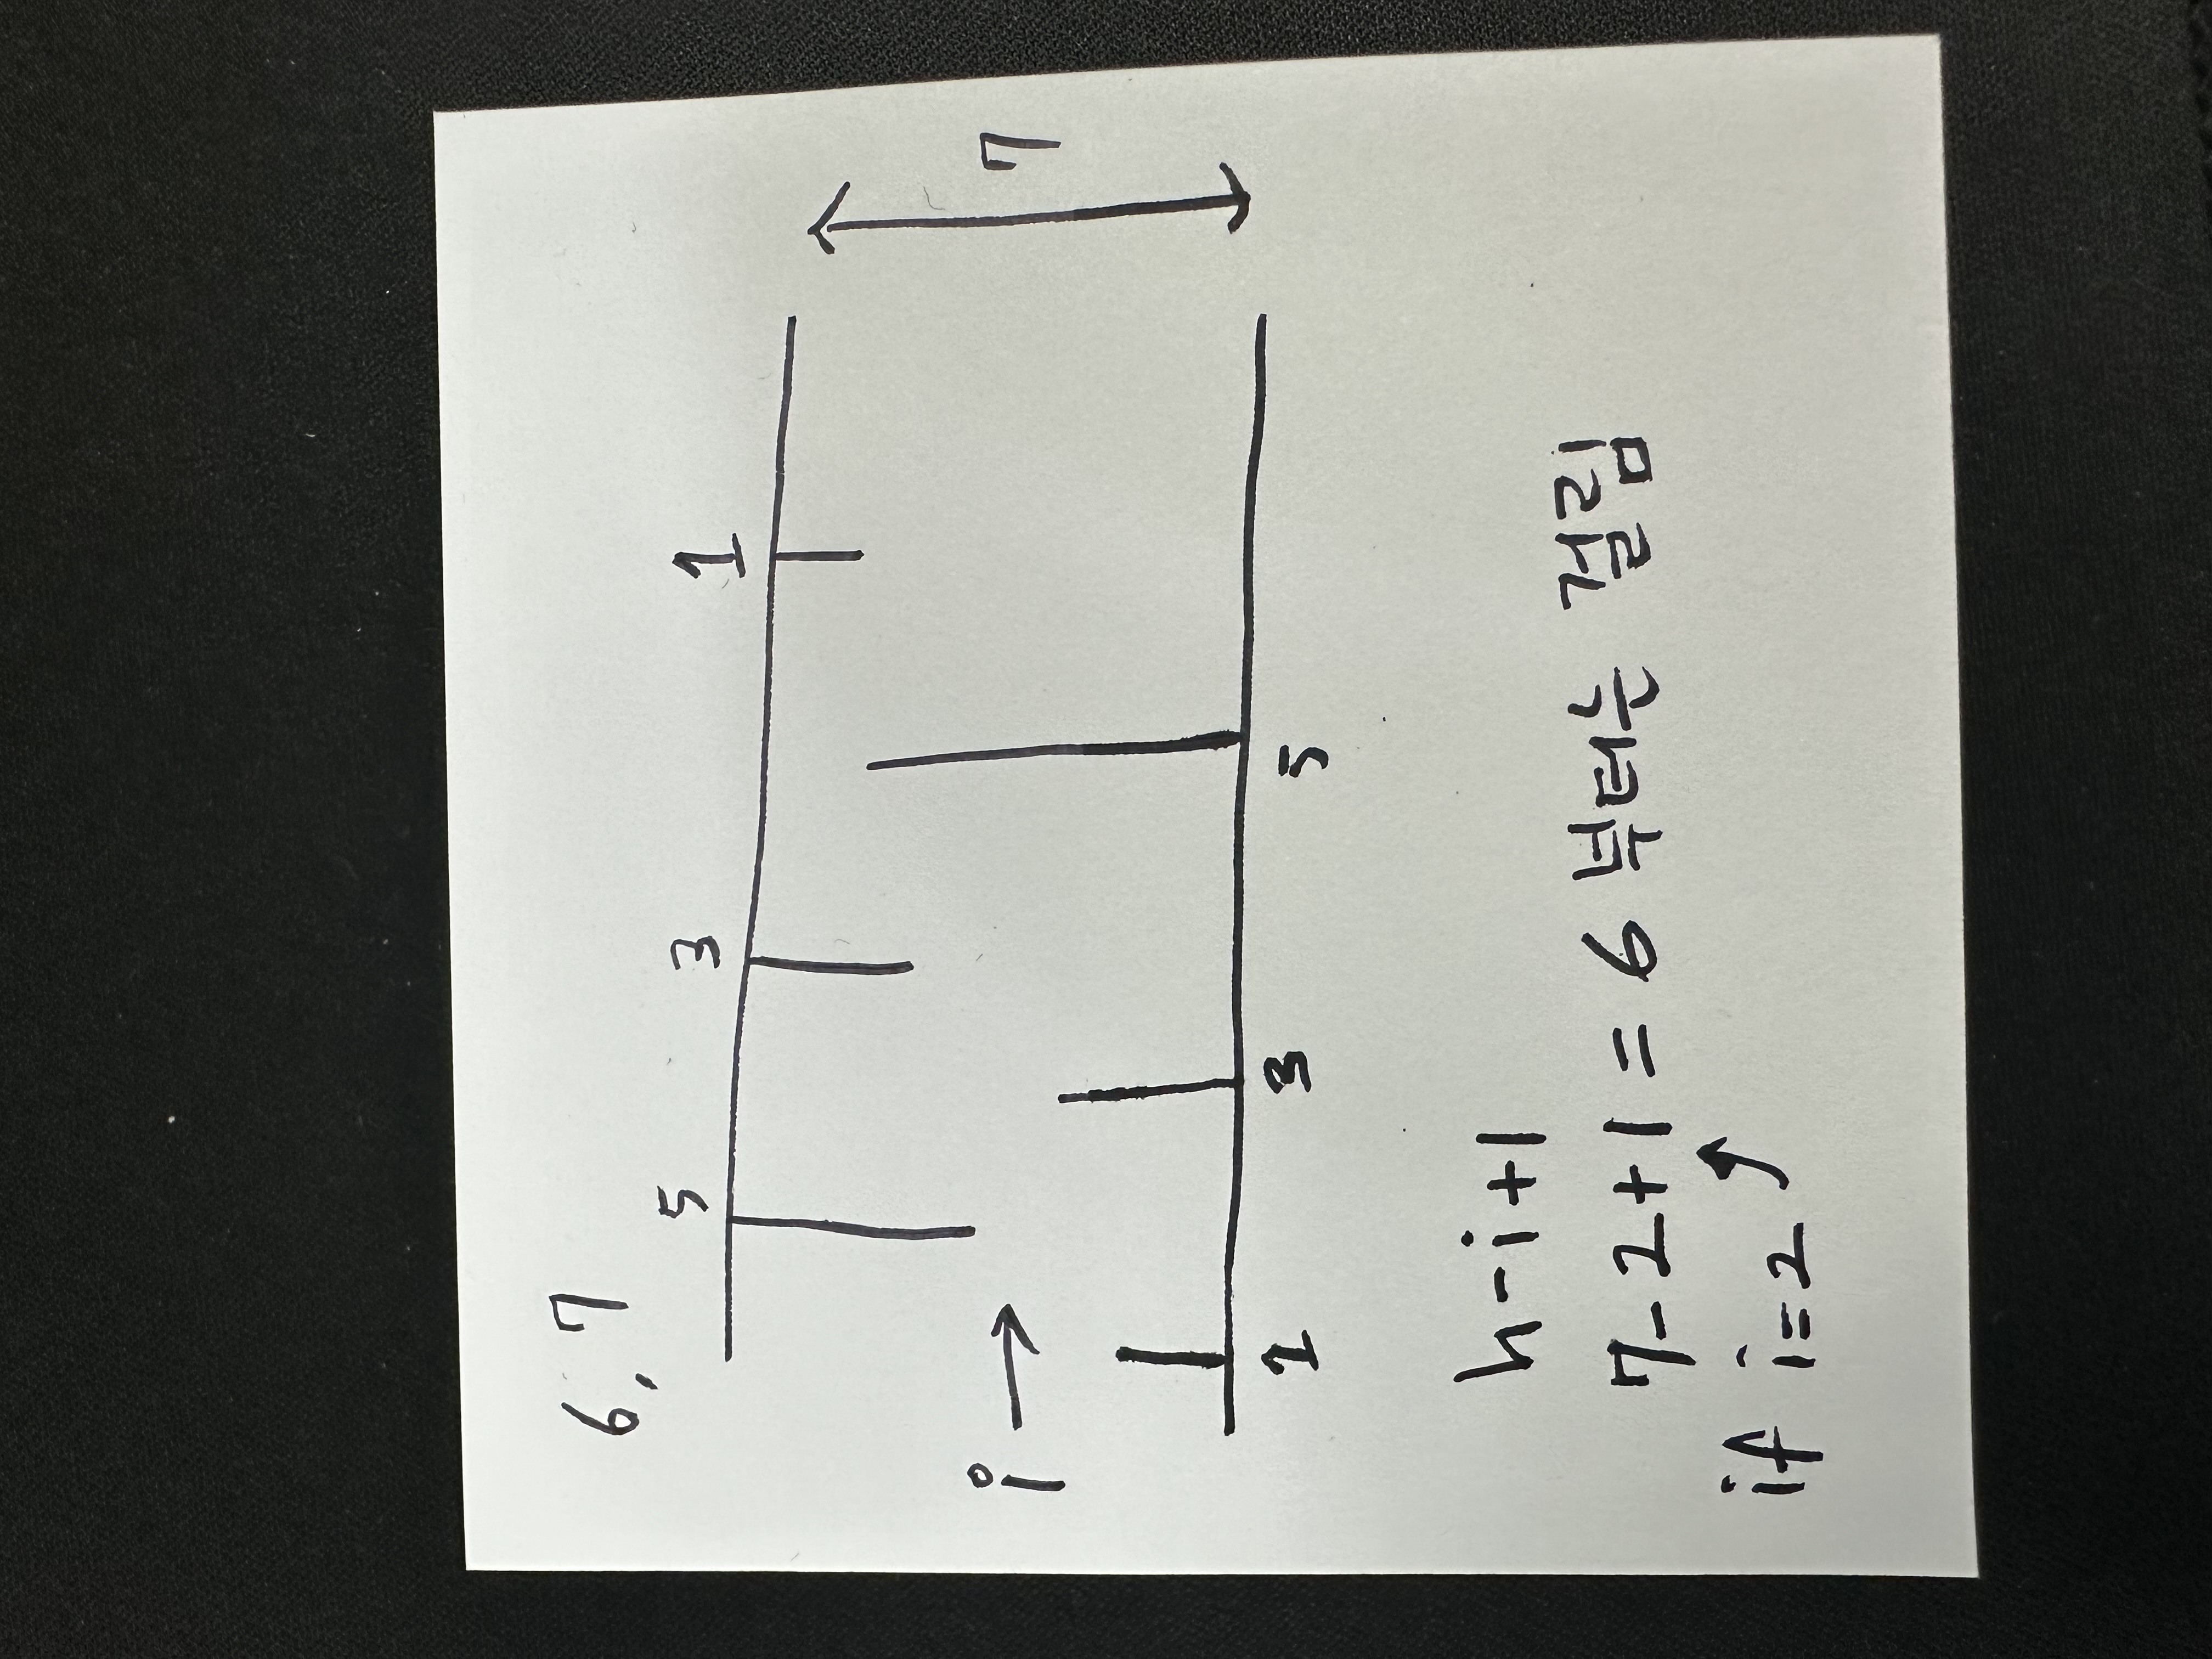 6, 7
5 3 1
i →
7
1 3 5
h-i+1
7-2+1 = 6 부터는 걸림
if i=2